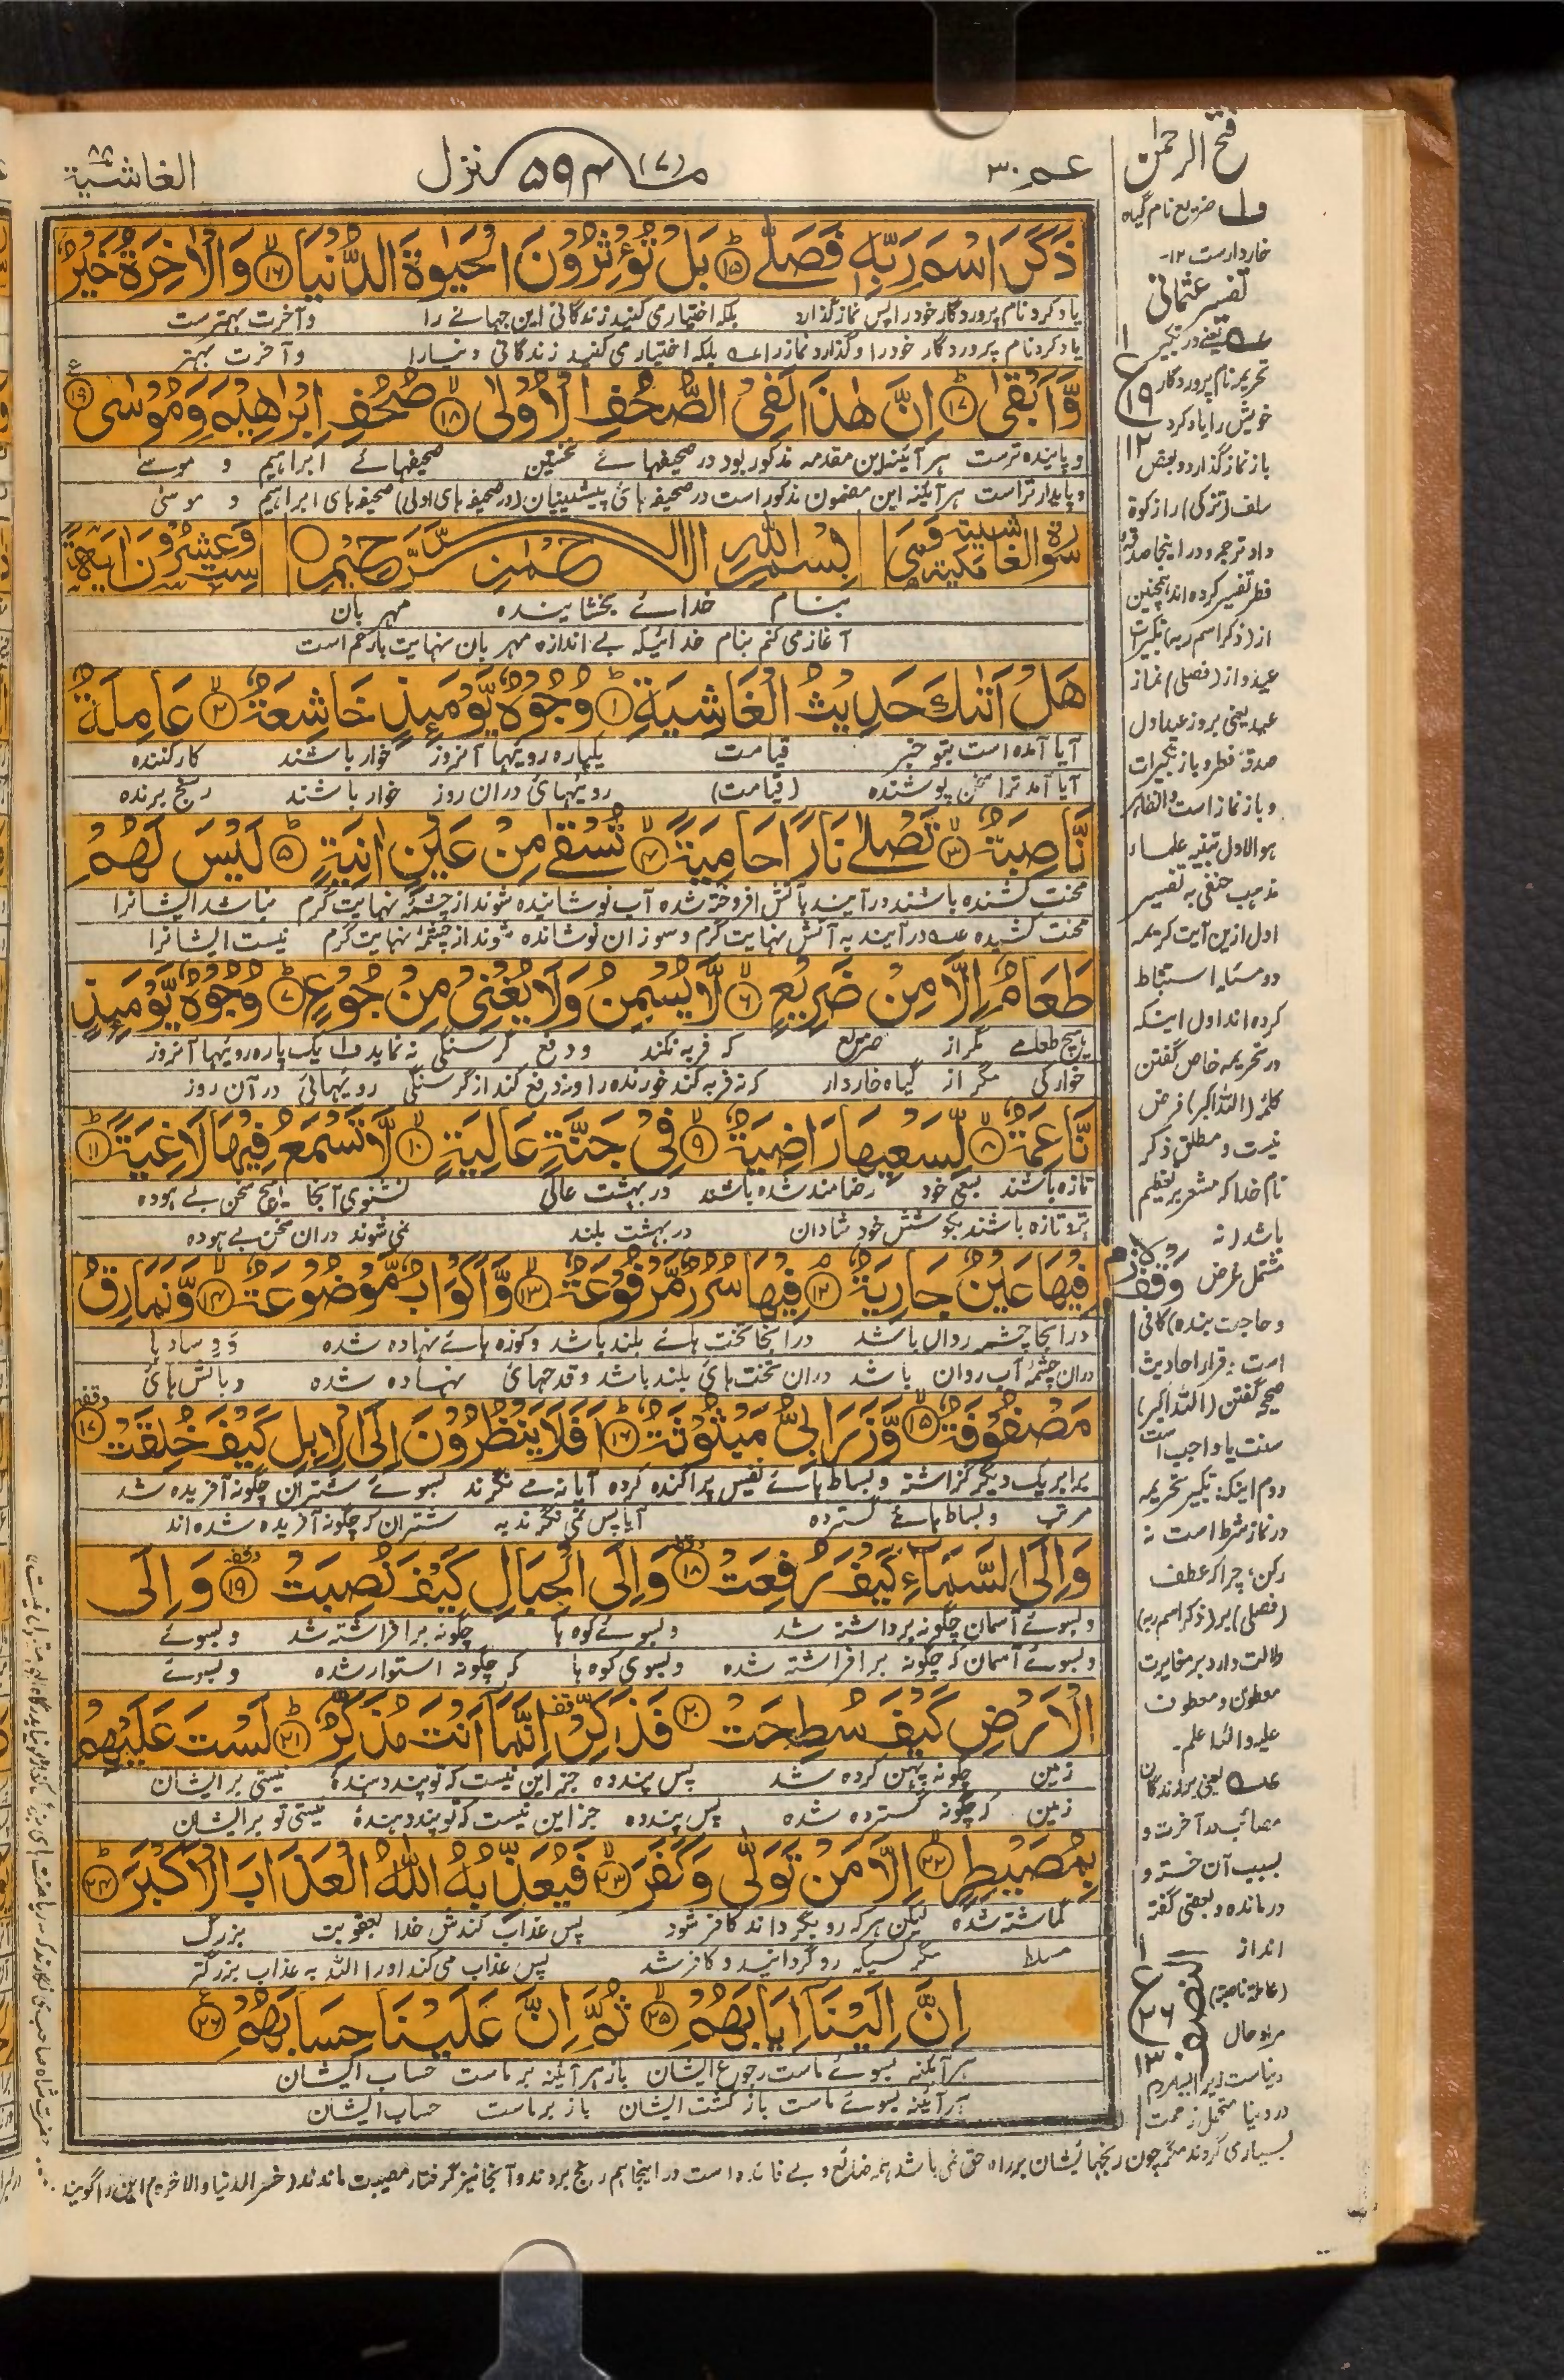 عـم ٣٠
منزل (٧) ٥٩٤
الغاشية ٨٨
ذَكَرَ اسْمَ رَبِّهٖ فَصَلّٰى ﴿١٥﴾ بَلْ تُؤْثِرُوْنَ الْحَيٰوةَ الدُّنْيَا ﴿١٦﴾ وَالْاٰخِرَةُ خَيْرٌ
یاد کرد نام پروردگار خود را پس نماز گذارد بلکه اختیار می کنید زندگانی این جهانے را و آخرت بهترست
یاد کرد نام پروردگار خود را و گذارد نماز را عـه بلکه اختیار می کنید زندگانی دنیا را و آخرت بهتر
وَّاَبْقٰى ﴿١٧﴾ اِنَّ هٰذَا لَفِى الصُّحُفِ الْاُوْلٰى ﴿١٨﴾ صُحُفِ اِبْرٰهِيْمَ وَمُوْسٰى ﴿١٩﴾
و پاینده ترست هر آئینه این مقدمه مذکور بود در صحیفهائے نخستین صحیفهائے ابراهیم و موسے
و پایدارتر است هر آئینه این مضمون مذکور است در صحیفه هائ پیشینیان (در صحیفه های اولی) صحیفه های ابراهیم و موسیٰ
سورة الغاشية مكية وهى
بِسْمِ اللهِ الرَّحْمٰنِ الرَّحِيْمِ
ست وعشرون اٰية
بنام خدائے بخشاینده مهربان
آغاز می کنم بنام خدائیکه بے اندازه مهربان نهایت بارحم است
هَلْ اَتٰىكَ حَدِيْثُ الْغَاشِيَةِ ﴿١﴾ وُجُوْهٌ يَّوْمَئِذٍ خَاشِعَةٌ ﴿٢﴾ عَامِلَةٌ
آیا آمده است بتو خبر قیامت یکپاره رویها آنروز خوار باشند کار کننده
آیا آمد ترا سخن پوشنده (قیامت) رویهائ دران روز خوار باشند رنج برنده
نَّاصِبَةٌ ﴿٣﴾ تَصْلٰى نَارًا حَامِيَةً ﴿٤﴾ تُسْقٰى مِنْ عَيْنٍ اٰنِيَةٍ ﴿٥﴾ لَيْسَ لَهُمْ
محنت کشنده باشند در آیند بآتش افروخته شده آب نوشانیده شوند از چشمۀ نهایت گرم نباشد ایشانرا
محنت کشیده عـه در آیند به آتش نهایت گرم و سوزان نوشانده شوند از چشمۀ نهایت گرم نیست ایشانرا
طَعَامٌ اِلَّا مِنْ ضَرِيْعٍ ﴿٦﴾ لَّا يُسْمِنُ وَلَا يُغْنِىْ مِنْ جُوْعٍ ﴿٧﴾ وُجُوْهٌ يَّوْمَئِذٍ
هیچ طعامے مگر از ضریع که فربه نکند و دفع گرسنگی نه نماید ف۱ یک پاره رویها آنروز
خوراکی مگر از گیاه خاردار که نه فربه کند خورنده را و نه دفع کند از گرسنگی رویهائی در آن روز
نَّاعِمَةٌ ﴿٨﴾ لِّسَعْيِهَا رَاضِيَةٌ ﴿٩﴾ فِىْ جَنَّةٍ عَالِيَةٍ ﴿١٠﴾ لَّا تَسْمَعُ فِيْهَا لَاغِيَةً ﴿١١﴾
تازه باشند بسعی خود رضامند شده باشند در بهشت عالی نشنوی آنجا هیچ سخن بے هوده
تر و تازه باشند بکوشش خود شادان در بهشت بلند نمی شوند دران سخن بے هوده
فِيْهَا عَيْنٌ جَارِيَةٌ ﴿١٢﴾ فِيْهَا سُرُرٌ مَّرْفُوْعَةٌ ﴿١٣﴾ وَّاَكْوَابٌ مَّوْضُوْعَةٌ ﴿١٤﴾ وَّنَمَارِقُ
در آنجا چشمہ رواں باشد در آنجا تخت هائے بلند باشد و کوزه هائے نهاده شده و وسادہا
دران چشمۀ آب روان باشد دران تخت هائ بلند باشد و قدحهائ نهاده شده و بالش هائ
مَصْفُوْفَةٌ ﴿١٥﴾ وَّزَرَابِىُّ مَبْثُوْثَةٌ ﴿١٦﴾ اَفَلَا يَنْظُرُوْنَ اِلَى الْاِبِلِ كَيْفَ خُلِقَتْ ﴿١٧﴾
برابر یک دیگر گذاشته و بساط هائے نفیس پراگنده کرده آیا نه مے نگرند بسوئے شتران چگونه آفریده شد
مرتب و بساط هائے گسترده آیا پس نمی نگرند به شتران که چگونه آفریده شده اند
وَاِلَى السَّمَآءِ كَيْفَ رُفِعَتْ ﴿١٨﴾ وَاِلَى الْجِبَالِ كَيْفَ نُصِبَتْ ﴿١٩﴾ وَاِلَى
و بسوئے آسمان چگونه برداشته شد و بسوئے کوه ها چگونه برافراشته شد و بسوئے
و بسوئے آسمان که چگونه برافراشته شده و بسوی کوه ها که چگونه استوار شده و بسوئے
الْاَرْضِ كَيْفَ سُطِحَتْ ﴿٢٠﴾ فَذَكِّرْ اِنَّمَآ اَنْتَ مُذَكِّرٌ ﴿٢١﴾ لَسْتَ عَلَيْهِمْ
زمین چگونه پهن کرده شد پس پند ده جز این نیست که تو پند دهندۀ نیستی بر ایشان
زمین که چگونه گسترده شده پس پند ده جز این نیست که تو پند دهندۀ نیستی تو بر ایشان
بِمُصَيْطِرٍ ﴿٢٢﴾ اِلَّا مَنْ تَوَلّٰى وَكَفَرَ ﴿٢٣﴾ فَيُعَذِّبُهُ اللهُ الْعَذَابَ الْاَكْبَرَ ﴿٢٤﴾
گماشته شده لیکن هر که رو بگرداند کافر شود پس عذاب کندش خدا بعقوبت بزرگ
مسلط مگر کسیکه روگردانید و کافر شد پس عذاب می کند او را الله به عذاب بزرگتر
اِنَّ اِلَيْنَآ اِيَابَهُمْ ﴿٢٥﴾ ثُمَّ اِنَّ عَلَيْنَا حِسَابَهُمْ ﴿٢٦﴾
هر آئینه بسوئے ماست رجوع ایشان باز هر آئینه بر ماست حساب ایشان
هر آئینه بسوئے ماست بازگشت ایشان باز بر ماست حساب ایشان
فتح الرحمٰن
ف۱ ضریع نام گیاه
خاردارست ۱۲-
تفسیر عثمانی
عـه یعنی در تکبیر
تحریمه نام پروردگار
خویش را یاد کرد
باز نماز گذارد و بعض
سلف (تزکی) را از زکوة
داد ترجمه و در اینجا صدقه
فطر تفسیر کرده اند همچنین
از (ذکر اسم ربه) تکبیرات
عید و از (فصلی) نماز
عید یعنی بروز عید اول
صدقۀ فطر و باز تکبیرات
و باز نماز است والظاهر
هو الاول تنبیه علماء
مذهب حنفی به تفسیر
اول ازین آیت کریمه
دو مسئله استنباط
کرده اند اول اینکه
در تحریمه خاص گفتن
کلمۀ (الله اکبر) فرض
نیست و مطلق ذکر
نام خدا که مشعر بر تعظیم
باشد (نه
مشتمل غرض
و حاجت بنده) کافی
است، قرار احادیث
صحیحه گفتن (الله اکبر)
سنت یا واجب است
دوم اینکه تکبیر تحریمه
در نماز شرط است نه
رکن؛ چرا که عطف
(فصلی) بر (ذکر اسم ربه)
دلالت دارد بر مغایرت
معطوف و معطوف
علیه والله اعلم۔
عـه یعنی برندگان
مصائب در آخرت و
بسبب آن خسته و
درمانده و بعضی گفته
انداز
(عاملة ناصبة)
مراد حال
دنیاست زیرا بسا مردم
در دنیا متحمل زحمت
النصف
بسیاری گردند مگر چون رنجهائیشان بر راه حق نمی باشد همه ضائع و بے فائده است در اینجا هم رنج بردند و آنجا نیز گرفتار مصیبت ماندند (خسر الدنیا والاخرة) این را گویند